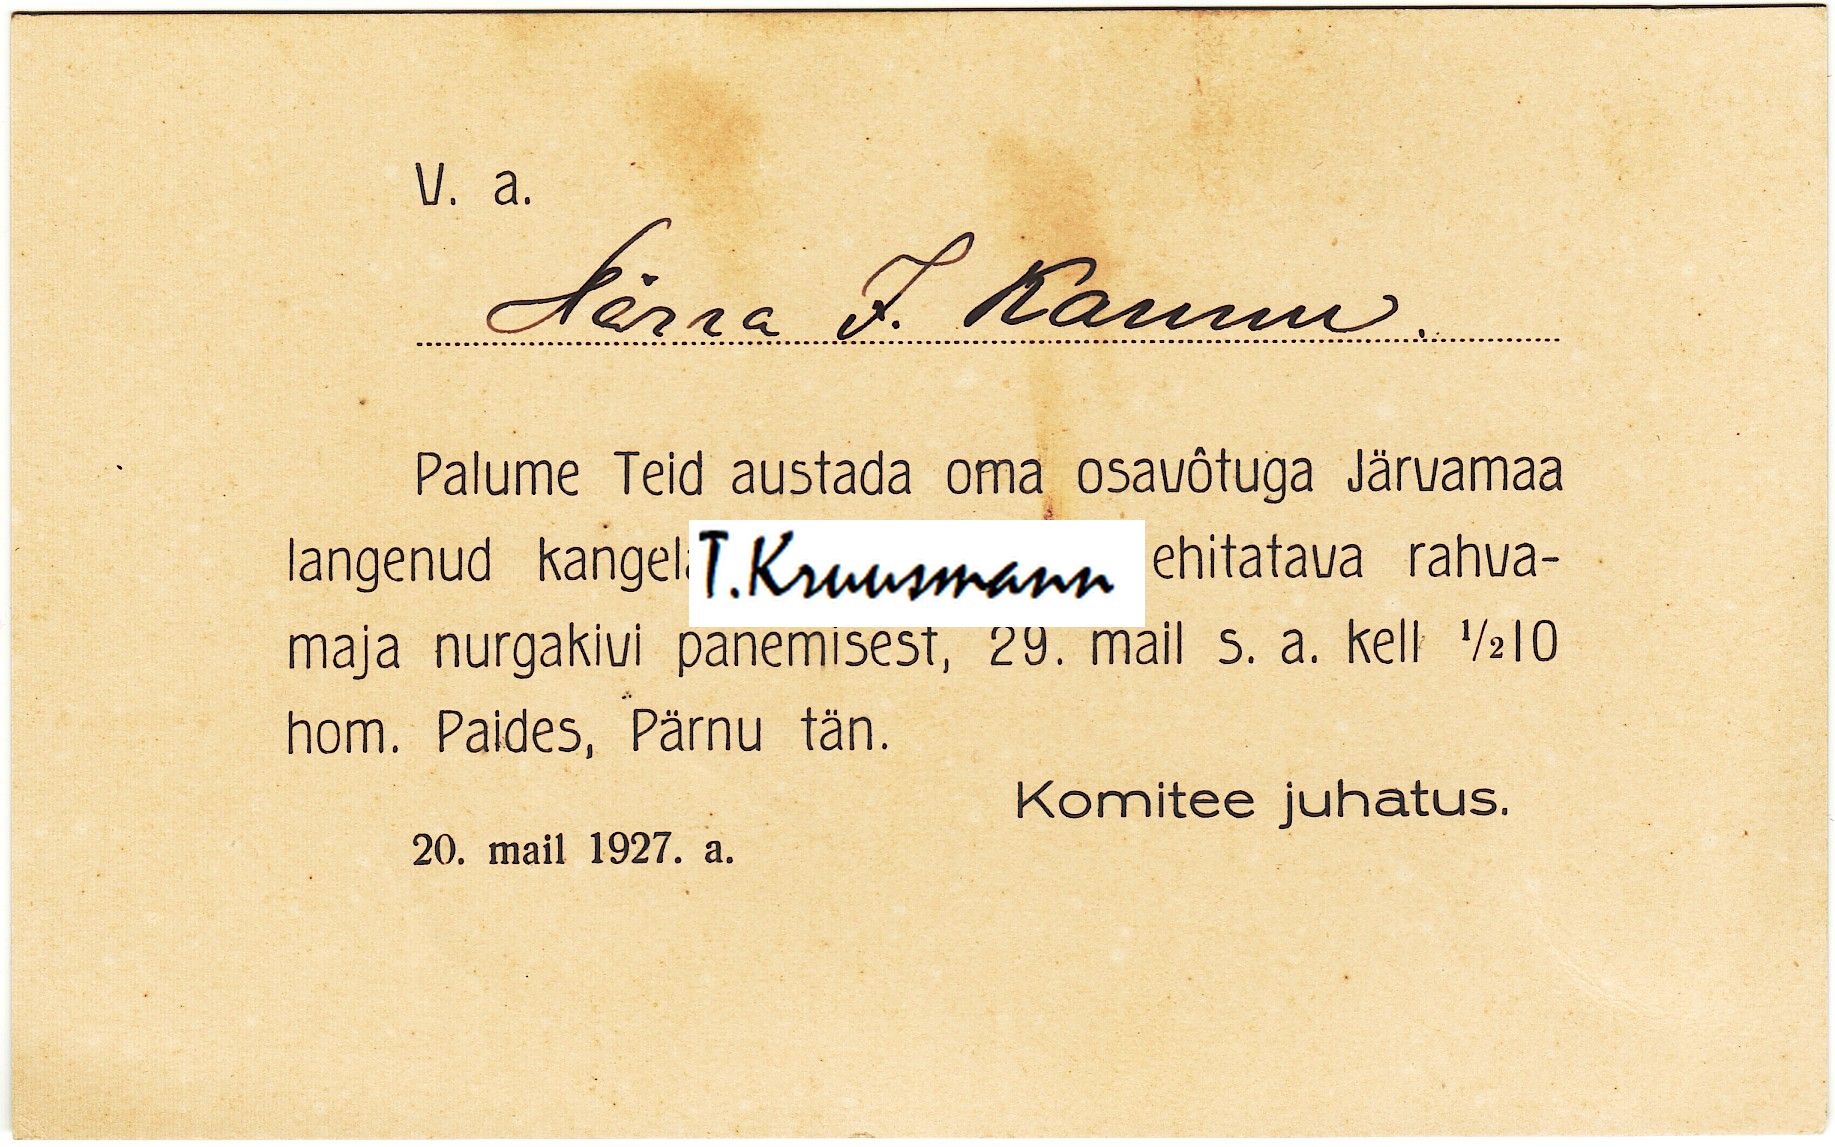 V. a.
Härra J. Kamm.
Palume Teid austada oma osavôtuga Järvamaa
langenud kangel T.Kruusmann ehitatava rahva-
maja nurgakivi panemisest, 29. mail s. a. kell ½10
hom. Paides, Pärnu tän.
Komitee juhatus.
20. mail 1927. a.